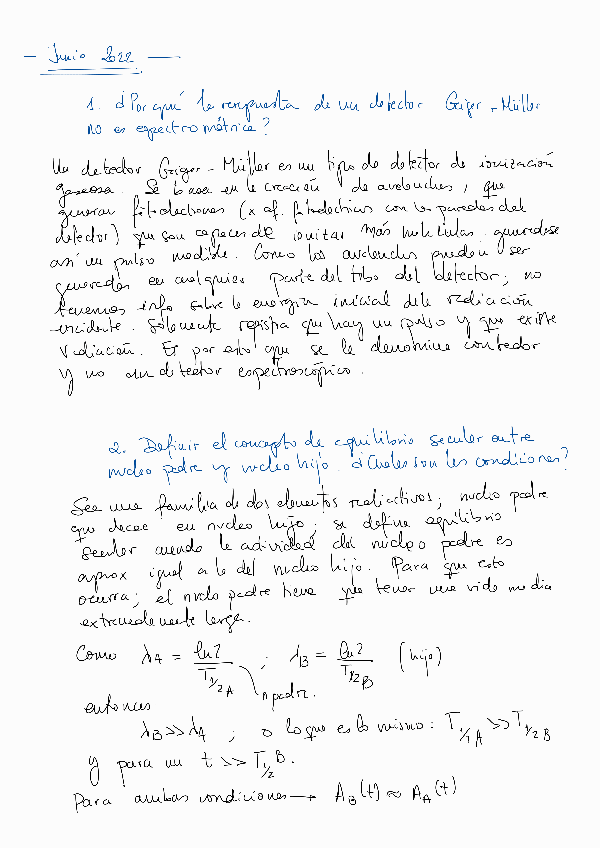 — Junio 2022 —
1. ¿Por qué la respuesta de un detector Geiger-Müller
no es espectrométrica?
Un detector Geiger-Müller es un tipo de detector de ionización
gaseosa. Se basa en la creación de avalanches, que
generan fotoelectrones (x ef. fotoeléctrico con las paredes del
detector) que son capaces de ionizar más moléculas generándose
así un pulso medible. Como las avalanchas pueden ser
generadas en cualquier parte del tubo del detector, no
tenemos info sobre la energía inicial de la radiación
incidente. Solamente registra que hay un pulso y que existe
radiación. Es por esto que se le denomina contador
y no un detector espectroscópico.
2. Definir el concepto de equilibrio secular entre
nucleo padre y nucleo hijo. ¿Cuáles son las condiciones?
Sea una familia de dos elementos radiactivos; nucleo padre
que decae en nucleo hijo; se define equilibrio
secular cuando la actividad del nucleo padre es
aprox igual a la del nucleo hijo. Para que esto
ocurra; el nucleo padre tiene que tener una vida media
extremadamente larga.
Como λA = ln2 / T1/2 A ; λB = ln2 / T1/2 B (hijo)
padre.
entonces
λB >> λA ; o lo que es lo mismo: T1/2 A >> T1/2 B
y para un t >> T1/2 B.
Para ambas condiciones → AB(t) ≈ AA(t)